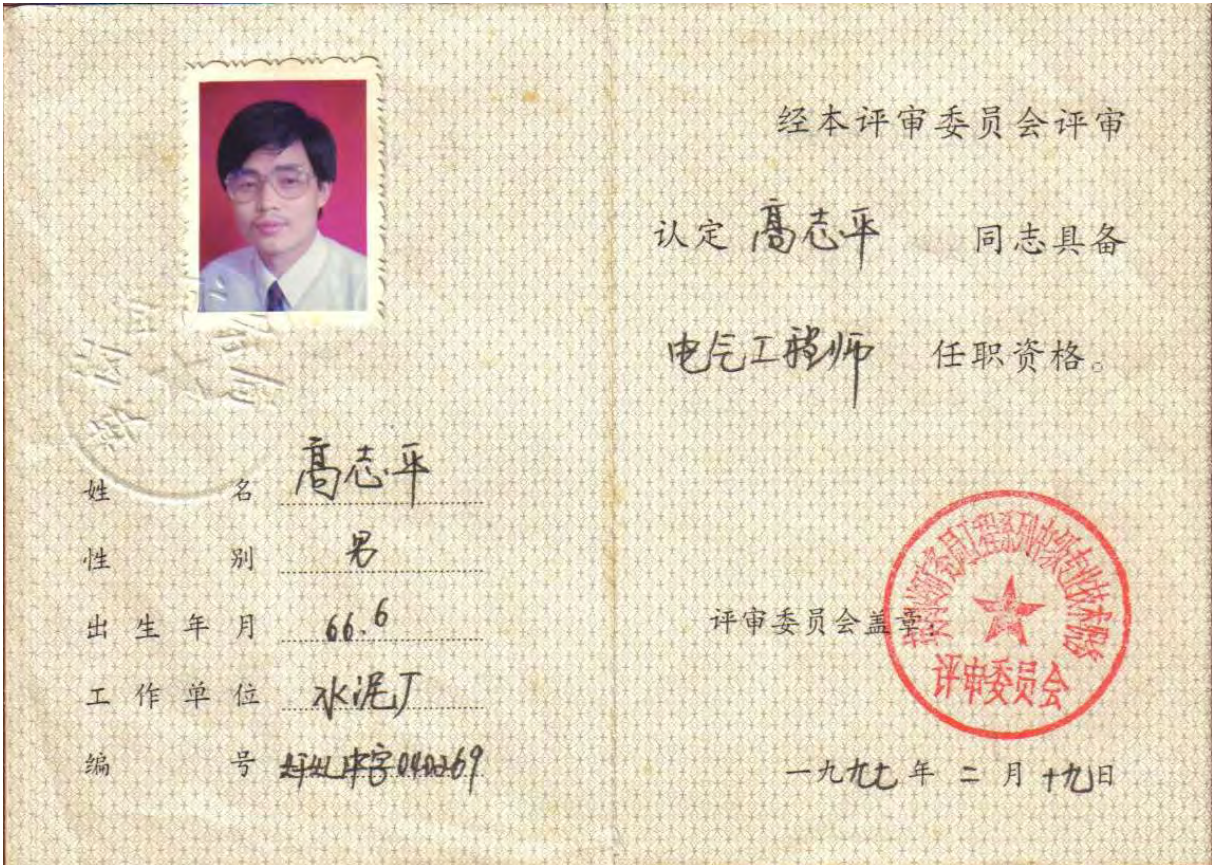 姓名 高志平
性别 男
出生年月 66.6
工作单位 水泥厂
编号 中字040269
经本评审委员会评审
认定 高志平 同志具备
电气工程师 任职资格。
评审委员会盖章:
矿务局工程系列中级专业技术职务
评审委员会
一九九七年二月十九日